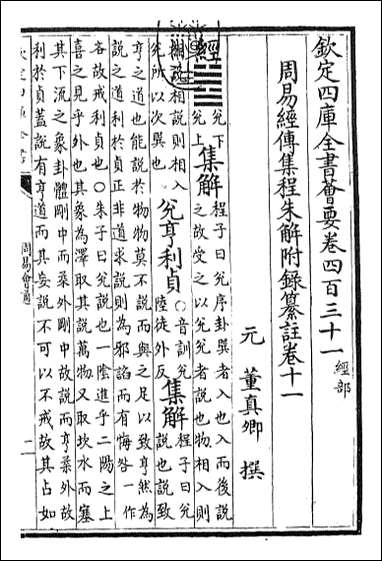 欽定四庫全書薈要卷四百三十一 經部
周易經傳集程朱解附錄纂註卷十一
元 董真卿 撰
經 ䷹ 兌下兌上 集解 程子曰兌序卦巽者入也入而後說之故受之以兌兌者說也物相入則
相說相說則相入兌所以次巽也 兌亨利貞 ○音訓兌陸徒外反 集解 程子曰兌說也說致
亨之道也能說於物物莫不說而與之足以致亨然為
說之道利於貞正非道求說則為邪諂而有悔咎一作
各故戒利貞也○朱子曰兌說也一陰進乎二陽之上
喜之見乎外也其象為澤取其說萬物又取坎水而塞
其下流之象卦體剛中而柔外剛中故說而亨柔外故
利於貞蓋說有亨道而其妄說不可以不戒故其占如
欽定四庫全書
周易會通